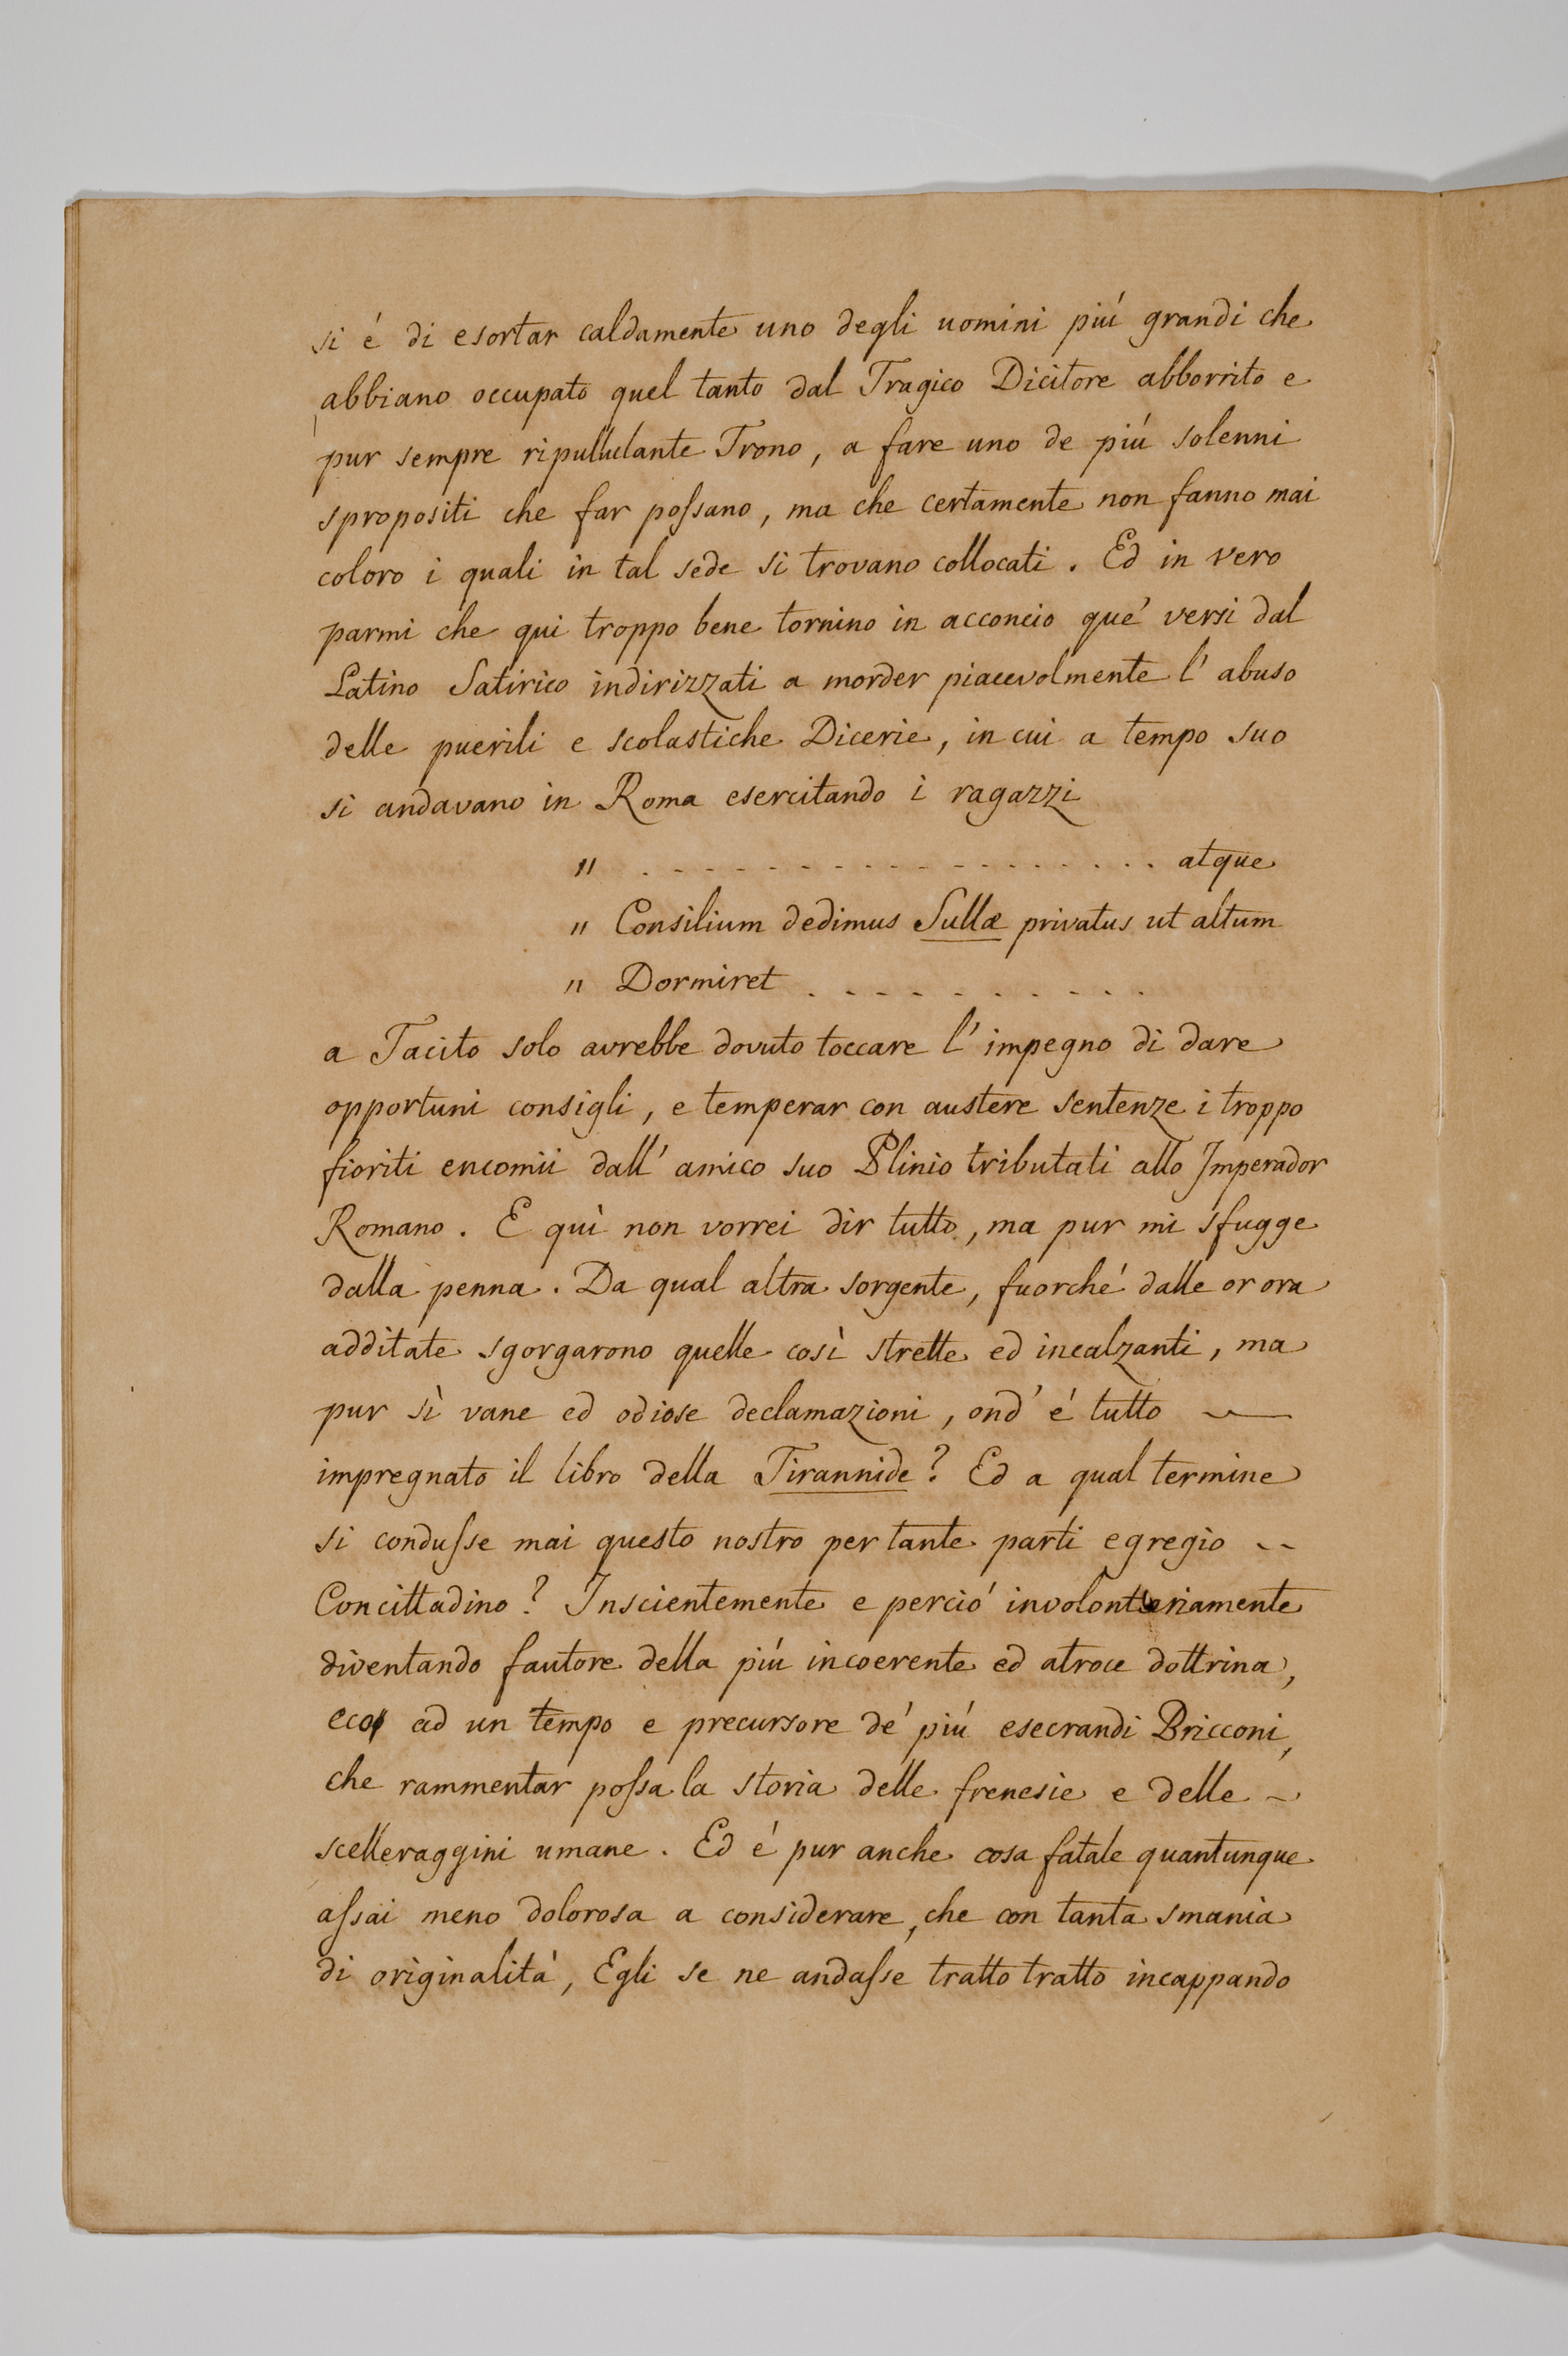 si é di esortar caldamente uno degli uomini piú grandi che
abbiano occupato quel tanto dal Tragico Dicitore abborrito e
pur sempre ripullulante Trono, a fare uno de piú solenni
spropositi che far poſsano, ma che certamente non fanno mai
coloro i quali in tal sede si trovano collocati. Ed in vero
parmi che qui troppo bene tornino in acconcio que' versi dal
Latino Satirico indirizzati a morder piacevolmente l'abuso
delle puerili e scolastiche Dicerie, in cui a tempo suo
si andavano in Roma esercitando i ragazzi
" . . . . . . . . . . . . . . . . . . atque
" Consilium dedimus Sullæ privatus ut altum
" Dormiret . . . . . . . . . .
a Tacito solo avrebbe dovuto toccare l'impegno di dare
opportuni consigli, e temperar con austere sentenze i troppo
fioriti encomii dall'amico suo Plinio tributati allo Imperador
Romano. E quì non vorrei dir tutto, ma pur mi sfugge
dalla penna. Da qual altra sorgente, fuorché dalle or ora
additate sgorgarono quelle così strette ed incalzanti, ma
pur sì vane ed odiose declamazioni, ond'é tutto
impregnato il libro della Tirannide? Ed a qual termine
si conduſse mai questo nostro per tante parti egregio
Concittadino? Inscientemente e perció involontariamente
diventando fautore della piú incoerente ed atroce dottrina,
eco ad un tempo e precursore de' piú esecrandi Bricconi,
che rammentar poſsa la storia delle frenesie e delle
scelleraggini umane. Ed é pur anche cosa fatale quantunque
aſsai meno dolorosa a considerare, che con tanta smania
di originalità, Egli se ne andaſse tratto tratto incappando